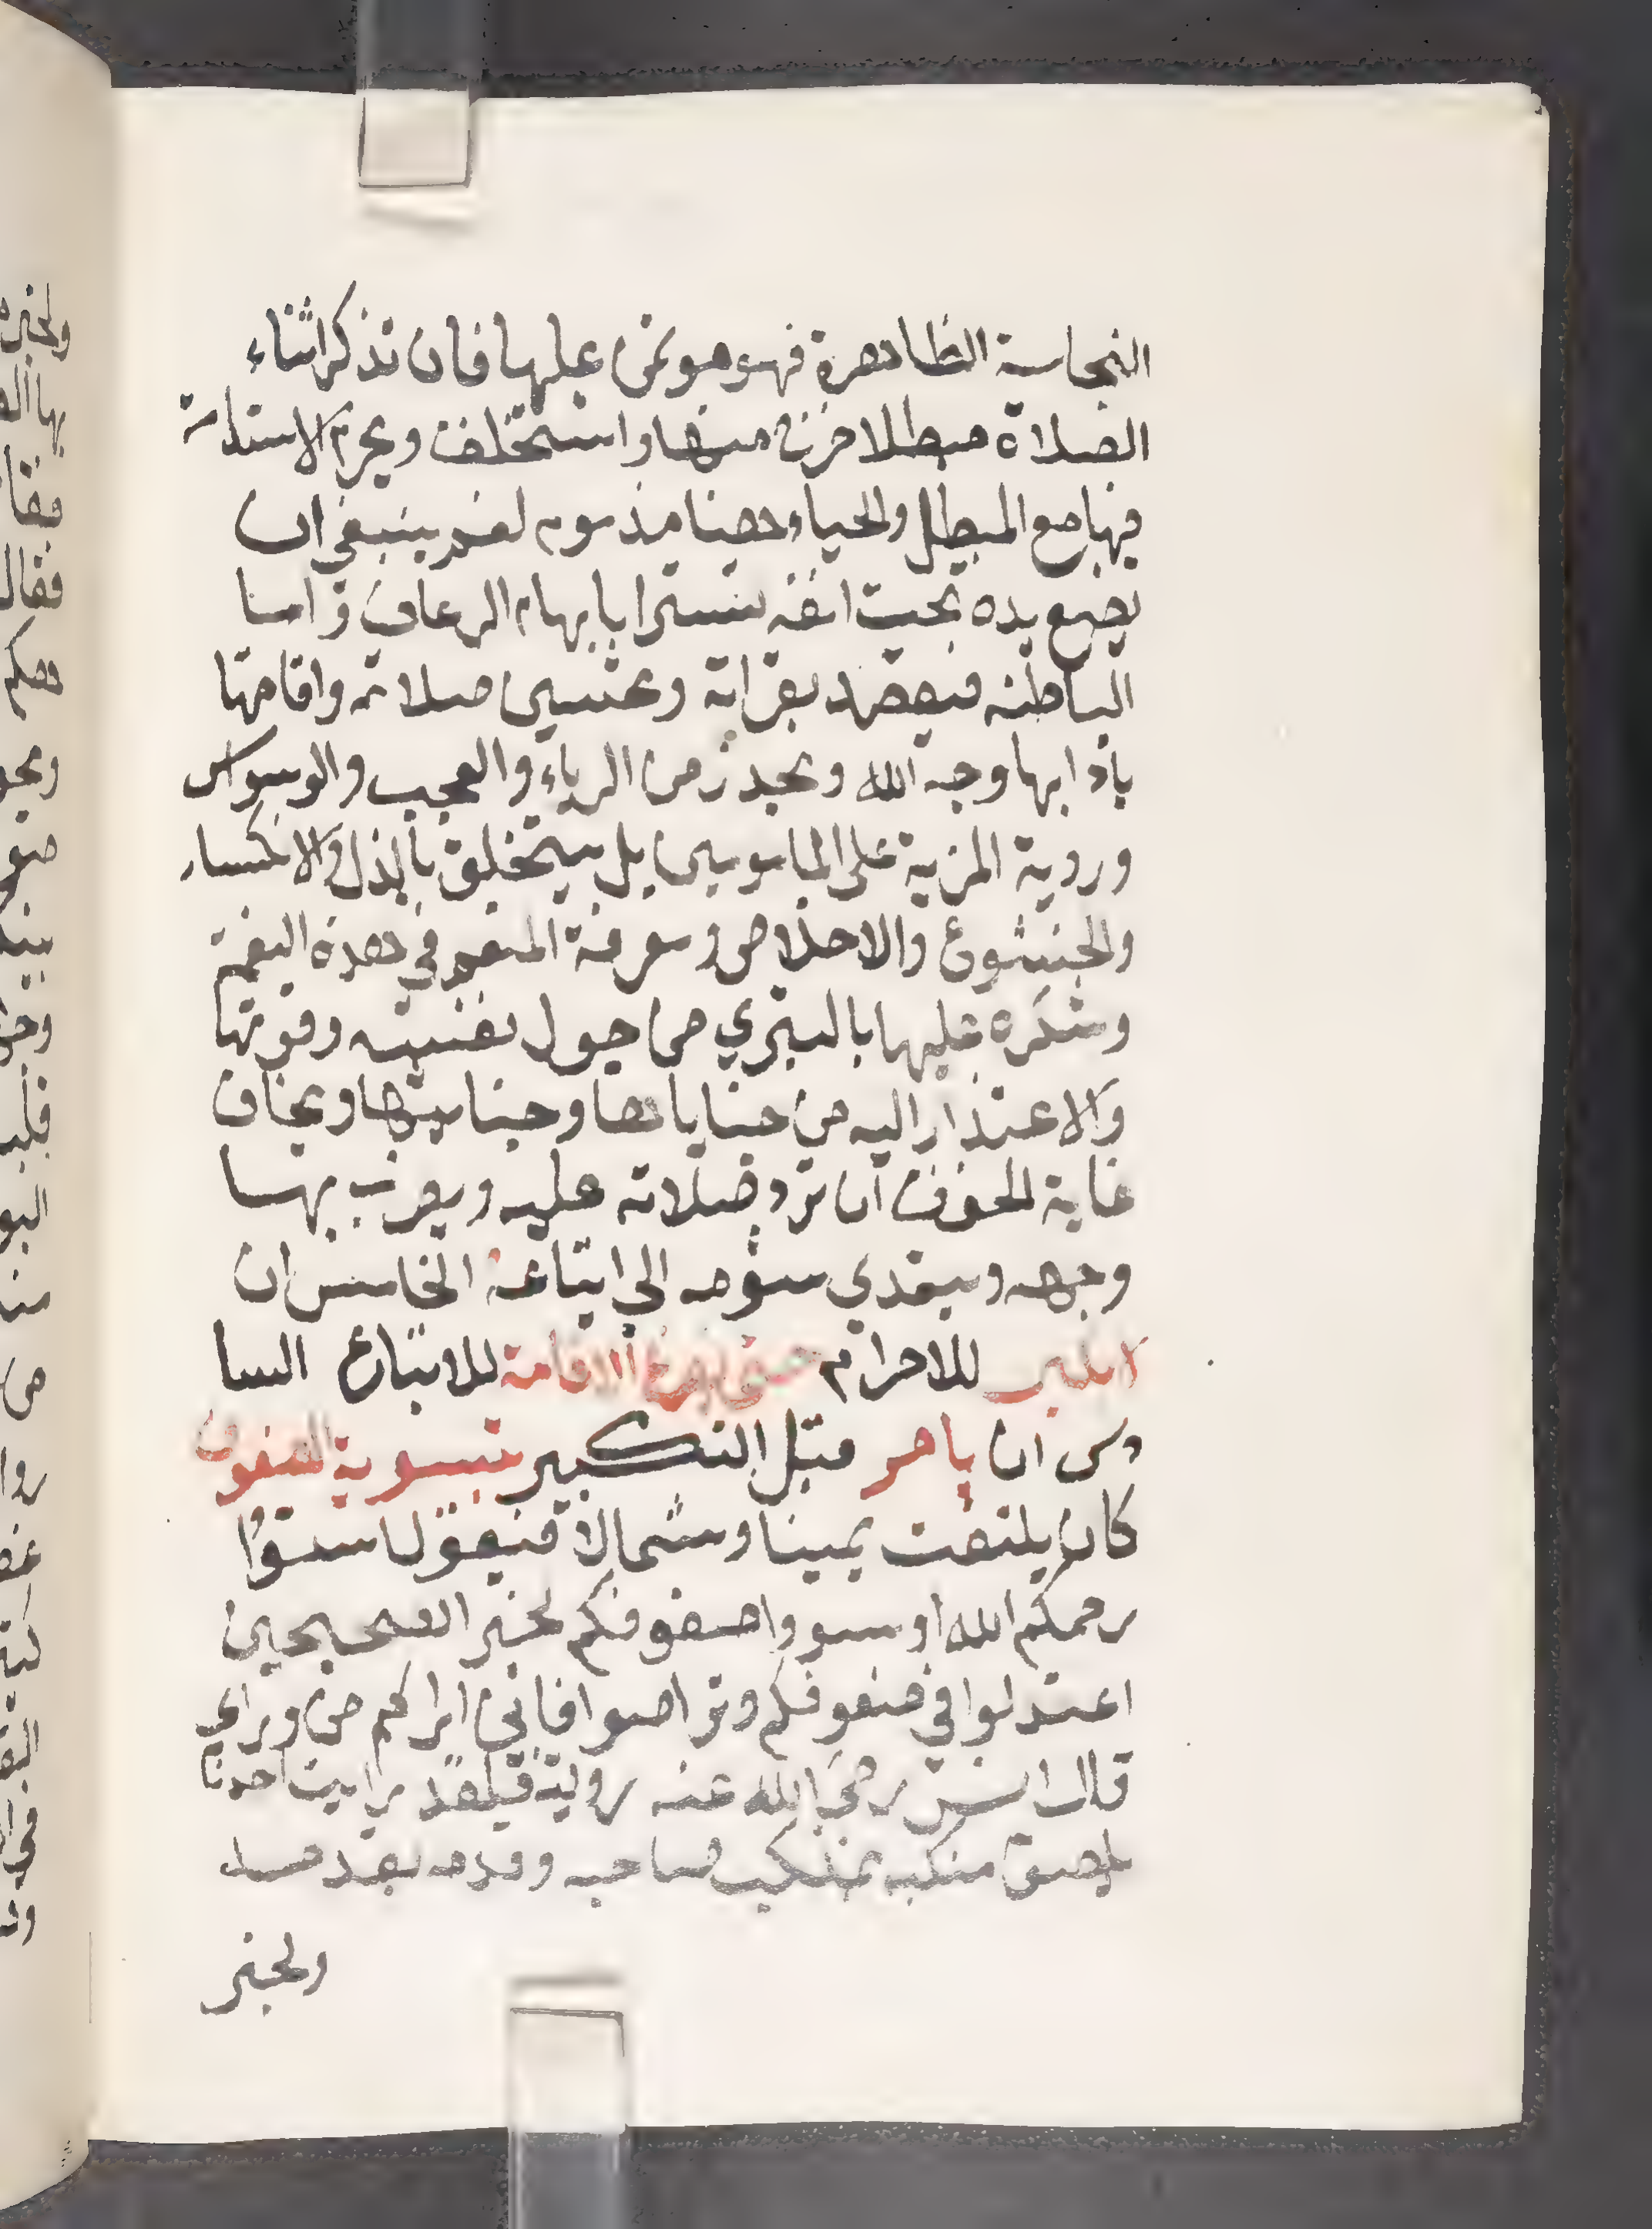 النجاسة الظاهرة فهو موتمن عليها فان تذكر اثناء
الصلاة مبطلا خرج منها واستخلف ويحرم الاستدامة
فيها مع المبطل والحياء هنا مذموم نعم ينبغي ان
يضع يده تحت انفه تسترا بابهام الرعاف واما
الباطنه فيقصد بقراته وتحسين صلاته واقامتها
بادابها وجه الله ويحذر من الرياء والعجب والوسواس
وروية المزية على المامومين بل يتخلق بالذل والانكسار
والخشوع والاخلاص ومعرفة المنعم في هذه النعم
وشكره عليها بالتبري من حول نفسه وقوتها
والاعتذار اليه من جناياتها وخيانتها ويخاف
غاية الخوف ان ترد صلاته عليه ويضرب بها
وجهه ويتعدي شومه الى اتباعه الخامس ان
لا يكبر للاحرام حتى يفرغ الاقامة للاتباع السا
دس ان يامر قبل التكبير بتسوية الصفوف
كان يلتفت يمينا وشمالا فيقول استووا
رحمكم الله او سووا صفوفكم لخبر الصحيحين
اعتدلوا في صفوفكم وتراصوا فاني اراكم من وراي
قال انس رضي الله عنه رويه فلقد رايت احدنا
يلصق منكبه بمنكب صاحبه وقدمه بقدمه
ولخبر